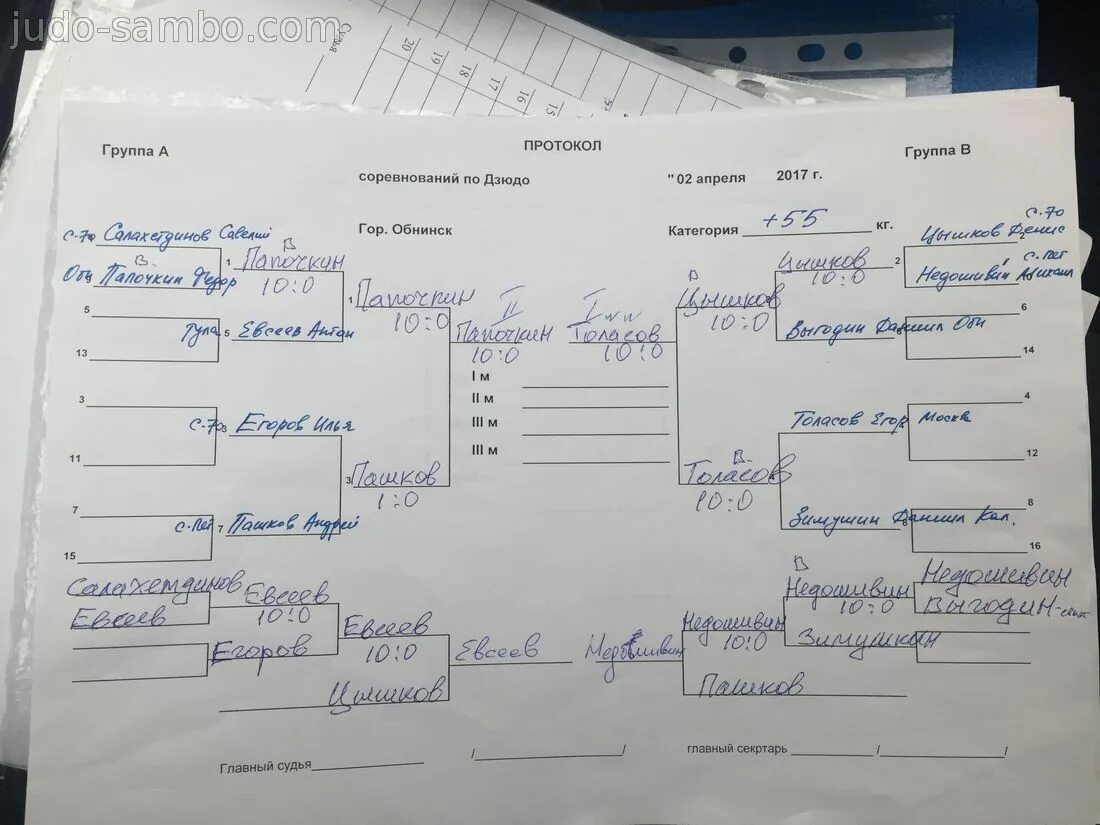 judo-sambo.com
Судья
20
19
18
17
16
15
ПРОТОКОЛ
Группа А
Группа В
соревнований по Дзюдо
"02 апреля 2017 г.
Гор. Обнинск
Категория +55 кг.
С-70 Салахетдинов Савелий
Обн Папочкин Федор
В.
1
В
Папочкин
10:0
5
13
Тула 5 Евсеев Антон
1
Папочкин
10:0
3
11
С-70 3 Егоров Илья
7
15
С.Пет 7 Пашков Андрей
3
Пашков
1:0
II
Папочкин
10:0
I
Толасов
10:0
I м
II м
III м
III м
В
Цышков
10:0
Цышков
10:0
2
С-70
Цышков Денис
2
С.Пет
Недошивин Михаил
Выгодин Даниил Обн
6
6
14
В.
Толасов
10:0
Толасов Егор Москва
4
12
Зимушин Даниил Кал.
8
8
16
Салахетдинов
Евсеев
Евсеев
10:0
Егоров
Евсеев
10:0
Цышков
Евсеев
Недошивин
Недошивин
10:0
Пашков
В
Недошивин
10:0
Зимушкин
Недошивин
Выгодин
Главный судья
/ /
главный секртарь / /